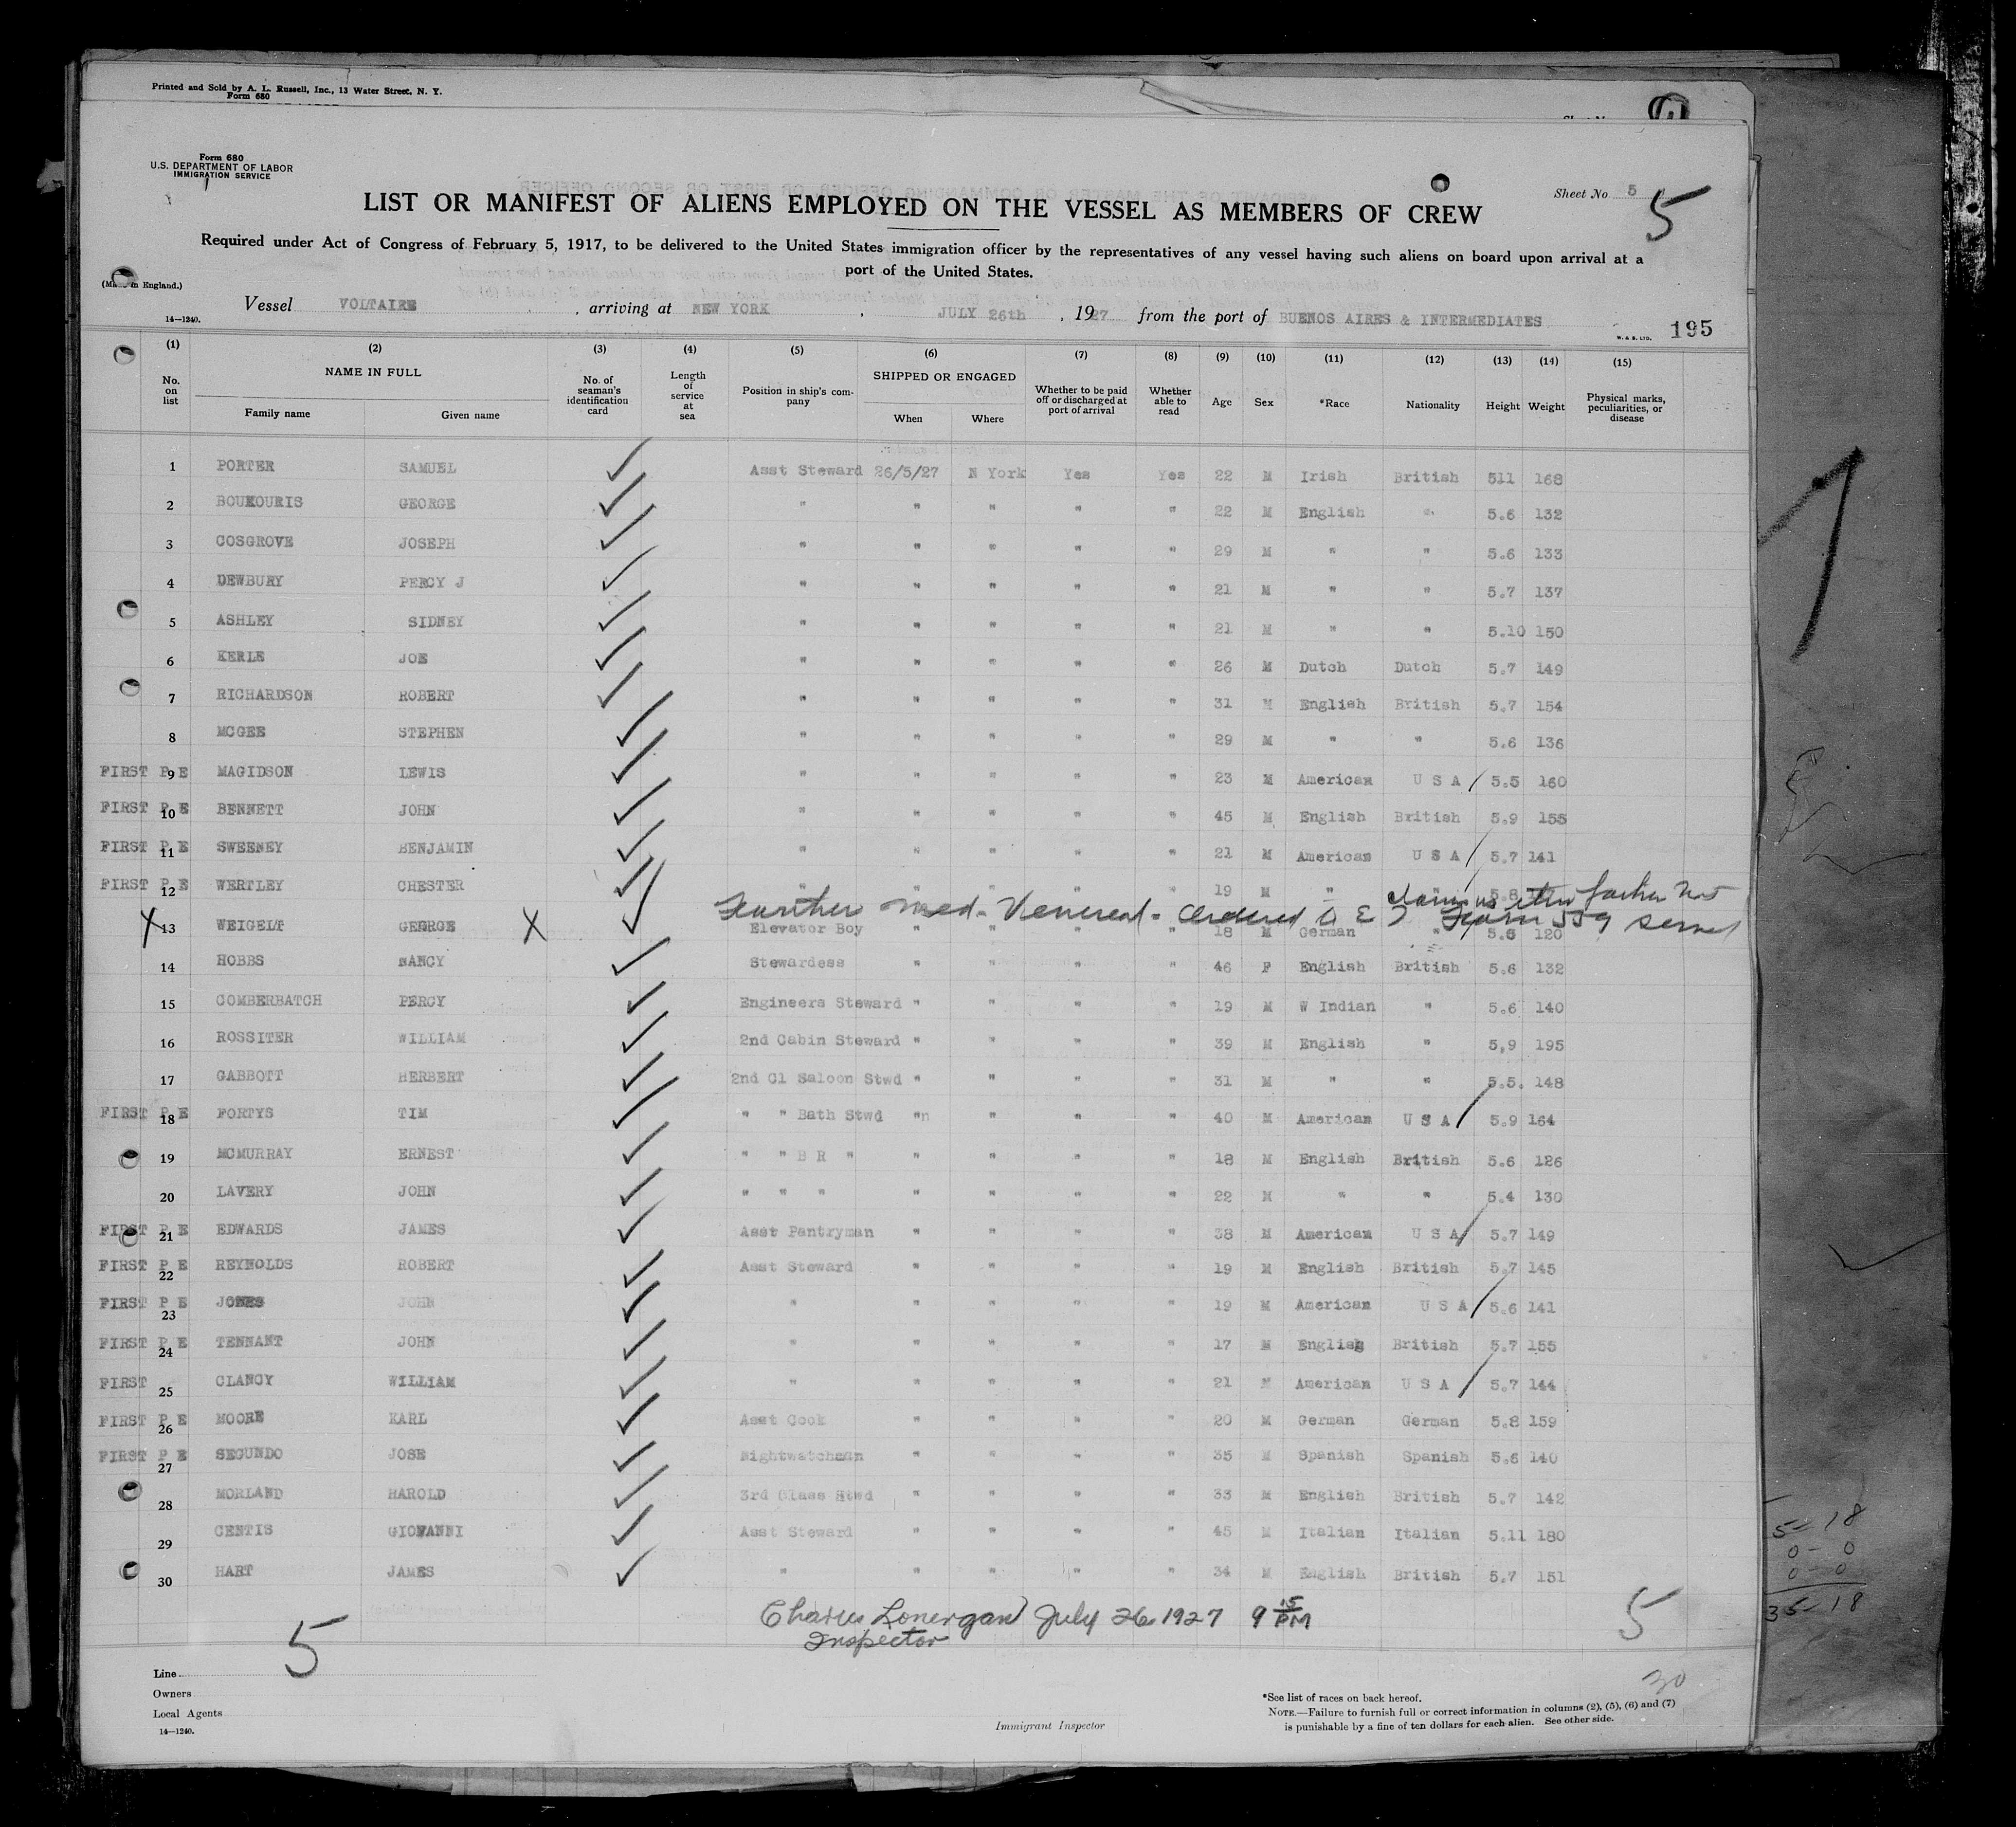 Printed and Sold by A. L. Russell, Inc., 13 Water Street, N. Y.
Form 680
Form 680
U.S. DEPARTMENT OF LABOR
IMMIGRATION SERVICE
Sheet No 5 5
LIST OR MANIFEST OF ALIENS EMPLOYED ON THE VESSEL AS MEMBERS OF CREW
Required under Act of Congress of February 5, 1917, to be delivered to the United States immigration officer by the representatives of any vessel having such aliens on board upon arrival at a
port of the United States.
Vessel VOLTAIRE, arriving at NEW YORK, JULY 26th, 1927 from the port of BUENOS AIRES & INTERMEDIATES
14—1240. W. & S. LTD. 195
(1) (2) (3) (4) (5) (6) (7) (8) (9) (10) (11) (12) (13) (14) (15)
No. on list NAME IN FULL Family name Given name No. of seaman's identification card Length of service at sea Position in ship's company SHIPPED OR ENGAGED When Where Whether to be paid off or discharged at port of arrival Whether able to read Age Sex *Race Nationality Height Weight Physical marks, peculiarities, or disease
1 PORTER SAMUEL Asst Steward 26/5/27 N York Yes Yes 22 M Irish British 511 168
2 BOUKOURIS GEORGE " " " " " 22 M English " 5.6 132
3 COSGROVE JOSEPH " " " " " 29 M " " 5.6 133
4 DEWBURY PERCY J " " " " " 21 M " " 5.7 137
5 ASHLEY SIDNEY " " " " " 21 M " " 5.10 150
6 KERLE JOE " " " " " 26 M Dutch Dutch 5.7 149
7 RICHARDSON ROBERT " " " " " 31 M English British 5.7 154
8 MCGEE STEPHEN " " " " " 29 M " " 5.6 136
FIRST P E 9 MAGIDSON LEWIS " " " " " 23 M American U S A 5.5 160
FIRST P E 10 BENNETT JOHN " " " " " 45 M English British 5.9 155
FIRST P E 11 SWEENEY BENJAMIN " " " " " 21 M American U S A 5.7 141
FIRST P E 12 WERTLEY CHESTER " " " " " 19 M " " 5.8
Further med. Venereal - Ordered D E 559 served
X 13 WEIGELT GEORGE X Elevator Boy " " " " 18 M German " 5.5 120
14 HOBBS NANCY Stewardess " " " " 46 F English British 5.6 132
15 COMBERBATCH PERCY Engineers Steward " " " " 19 M W Indian " 5.6 140
16 ROSSITER WILLIAM 2nd Cabin Steward " " " " 39 M English " 5,9 195
17 GABBOTT HERBERT 2nd Cl Saloon Stwd " " " " 31 M " " 5.5. 148
FIRST P E 18 FORTYS TIM " " Bath Stwd "n " " " 40 M American U S A 5.9 164
19 MCMURRAY ERNEST " " B R " " " " " 18 M English British 5.6 126
20 LAVERY JOHN " " " " " " " 22 M " " 5.4 130
FIRST P E 21 EDWARDS JAMES Asst Pantryman " " " " 38 M American U S A 5.7 149
FIRST P E 22 REYNOLDS ROBERT Asst Steward " " " " 19 M English British 5.7 145
FIRST P E 23 JONES JOHN " " " " " 19 M American U S A 5.6 141
FIRST P E 24 TENNANT JOHN " " " " " 17 M English British 5.7 155
FIRST 25 CLANCY WILLIAM " " " " " 21 M American U S A 5.7 144
FIRST P E 26 MOORE KARL Asst Cook " " " " 20 M German German 5.8 159
FIRST P E 27 SEGUNDO JOSE Nightwatchman " " " " 35 M Spanish Spanish 5.6 140
28 MORLAND HAROLD 3rd Class Stwd " " " " 33 M English British 5.7 142
29 CENTIS GIOVANNI Asst Steward " " " " 45 M Italian Italian 5.11 180
30 HART JAMES " " " " " 34 M English British 5.7 151
5-18
0-0
0-0
35-18
Charles Lonergan July 26 1927 9 15 PM
Inspector
5 5
30
Line
Owners
Local Agents
14—1240.
Immigrant Inspector
*See list of races on back hereof.
NOTE.—Failure to furnish full or correct information in columns (2), (5), (6) and (7)
is punishable by a fine of ten dollars for each alien. See other side.